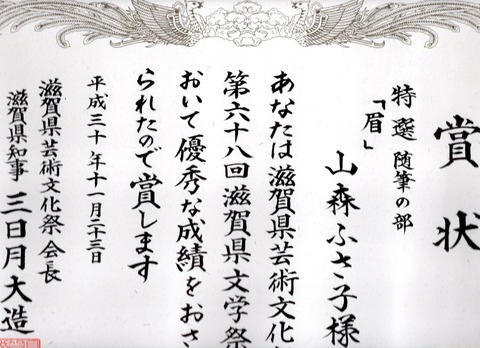 賞状
特選 随筆の部
「眉」
山森ふさ子様
あなたは滋賀県芸術文化
第六十八回滋賀県文学祭
おいて優秀な成績をおさ
られたので賞します
平成三十年十一月二十三日
滋賀県芸術文化祭 会長
滋賀県知事 三日月大造